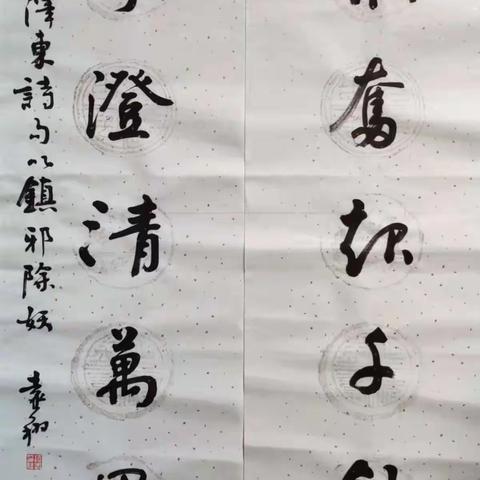 奮起千
澄清萬
澤東詩句以鎮邪除妖
袁翔